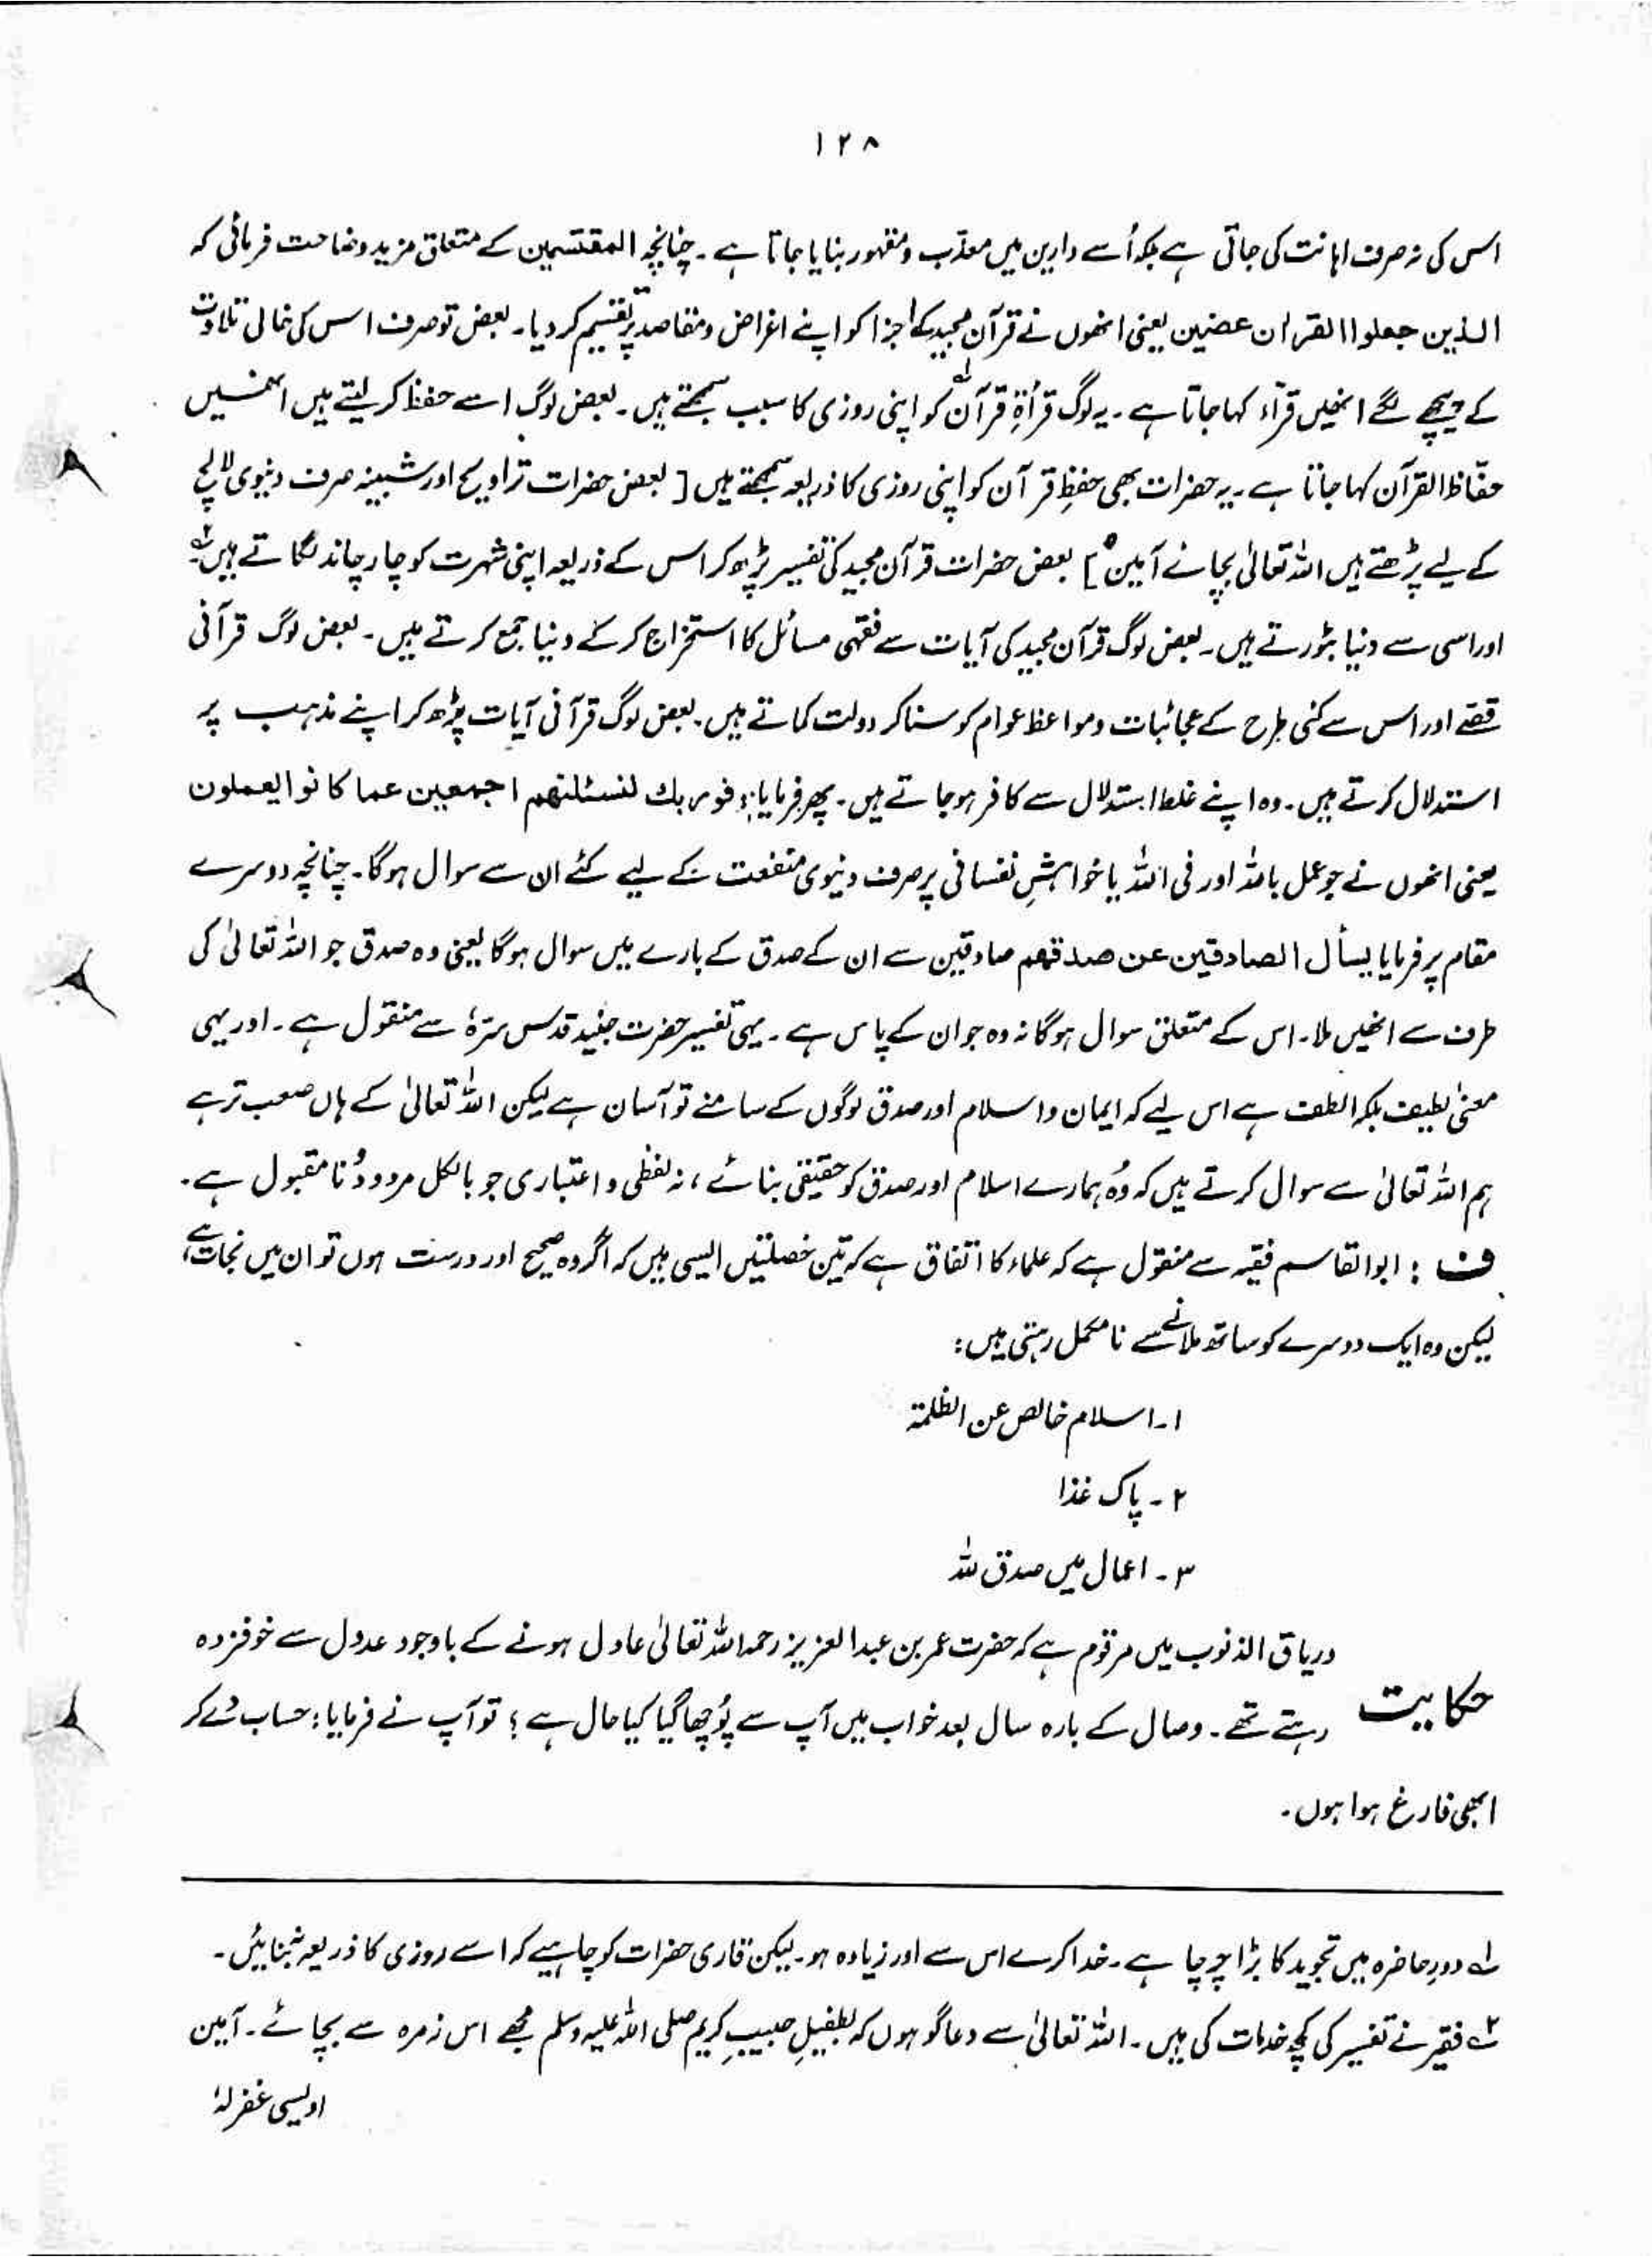 ۱۲۸
اس کی نہ صرف اہانت کی جاتی ہے بلکہ اُسے دارین میں معذب و مقہور بنایا جاتا ہے ۔ چنانچہ المقتسمین کے متعلق مزید وضاحت فرمائی کہ
الذین جعلوا القران عضین یعنی انھوں نے قرآن مجید کے اجزا کو اپنے اغراض و مقاصد پر تقسیم کر دیا ۔ بعض تو صرف اس کی خالی تلاوت
کے پیچھے لگے انھیں قرّاء کہا جاتا ہے ۔ یہ لوگ قرأۃِ قرآن کو اپنی روزی کا سبب سمجھتے ہیں ۔ بعض لوگ اسے حفظ کر لیتے ہیں انھیں
حفّاظ القرآن کہا جاتا ہے ۔ یہ حضرات بھی حفظِ قرآن کو اپنی روزی کا ذریعہ سمجھتے ہیں [ بعض حضرات تراویح اور شبینہ صرف دنیوی لالچ
کے لیے پڑھتے ہیں اللہ تعالیٰ بچائے آمین ] بعض حضرات قرآن مجید کی تفسیر پڑھ کر اس کے ذریعہ اپنی شہرت کو چار چاند لگاتے ہیں ۲ے
اور اسی سے دنیا بٹورتے ہیں ۔ بعض لوگ قرآن مجید کی آیات سے فقہی مسائل کا استخراج کر کے دنیا جمع کرتے ہیں ۔ بعض لوگ قرآنی
قصّے اور اس سے کئی طرح کے عجائبات و مواعظ عوام کو سنا کر دولت کماتے ہیں ۔ بعض لوگ قرآنی آیات پڑھ کر اپنے مذہب پر
استدلال کرتے ہیں ۔ وہ اپنے غلط استدلال سے کافر ہو جاتے ہیں ۔ پھر فرمایا : فوربك لنسئلنهم اجمعین عما کانوا یعملون
یعنی انھوں نے جو عمل باللہ اور فی اللہ یا خواہشِ نفسانی پر صرف دنیوی منفعت کے لیے کئے ان سے سوال ہوگا ۔ چنانچہ دوسرے
مقام پر فرمایا یسأل الصادقین عن صدقهم صادقین سے ان کے صدق کے بارے میں سوال ہوگا یعنی وہ صدق جو اللہ تعالیٰ کی
طرف سے انھیں ملا ۔ اس کے متعلق سوال ہوگا نہ وہ جو ان کے پاس ہے ۔ یہی تفسیر حضرت جنید قدس سرّہٗ سے منقول ہے ۔ اور یہی
معنیٰ لطیف بلکہ الطف ہے اس لیے کہ ایمان و اسلام اور صدق لوگوں کے سامنے تو آسان ہے لیکن اللہ تعالیٰ کے ہاں صعب تر ہے
ہم اللہ تعالیٰ سے سوال کرتے ہیں کہ وُہ ہمارے اسلام اور صدق کو حقیقی بنائے ، نہ لفظی و اعتباری جو بالکل مردود نا مقبول ہے ۔
ف : ابوالقاسم فقیہ سے منقول ہے کہ علماء کا اتفاق ہے کہ تین خصلتیں ایسی ہیں کہ اگر وہ صحیح اور درست ہوں تو ان میں نجات ہے ،
لیکن وہ ایک دوسرے کو ساتھ ملانے سے نامکمل رہتی ہیں :
۱ ۔ اسلام خالص عن الظلمۃ
۲ ۔ پاک غذا
۳ ۔ اعمال میں صدق للہ
دریاق الذنوب میں مرقوم ہے کہ حضرت عمر بن عبد العزیز رحمہ اللہ تعالیٰ عادل ہونے کے باوجود عدول سے خوفزدہ
حکایت رہتے تھے ۔ وصال کے بارہ سال بعد خواب میں آپ سے پُوچھا گیا کیا حال ہے ؟ تو آپ نے فرمایا : حساب دے کر
ابھی فارغ ہوا ہوں ۔
۱ے دورِ حاضرہ میں تجوید کا بڑا چرچا ہے ۔ خدا کرے اس سے اور زیادہ ہو ۔ لیکن قاری حضرات کو چاہیے کہ اسے روزی کا ذریعہ نہ بنائیں ۔
۲ے فقیر نے تفسیر کی کچھ خدمات کی ہیں ۔ اللہ تعالیٰ سے دعا گو ہوں کہ بطفیلِ حبیبِ کریم صلی اللہ علیہ وسلم مجھے اس زمرہ سے بچائے ۔ آمین
اویسی غفرلہٗ